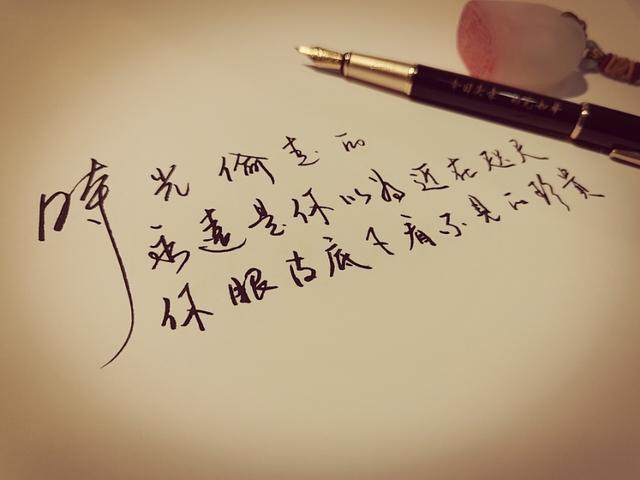 時光偷走的
永遠是你以为近在咫尺
你眼皮底下看不見的珍貴